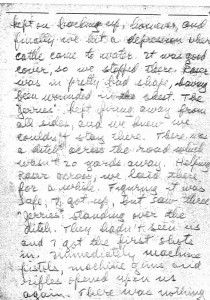 kept on backing up, however, and
finally we hit a depression where
cattle come to water. It was good
cover, so we stopped there. Kaser
was in pretty bad shape, having
been wounded in the chest. The
"Jerries" kept firing away from
all sides, and we knew we
couldn't stay there. There was
a ditch across the road which
wasn't 20 yards away. Helping
Kaser across, we laid there
for a while. Figuring it was
safe, I got up, but saw three
"Jerries" standing over the
ditch. They hadn't seen us
and I got the first shots
in. Immediately machine
pistols, machine guns and
rifles opened upon us
again. There was nothing